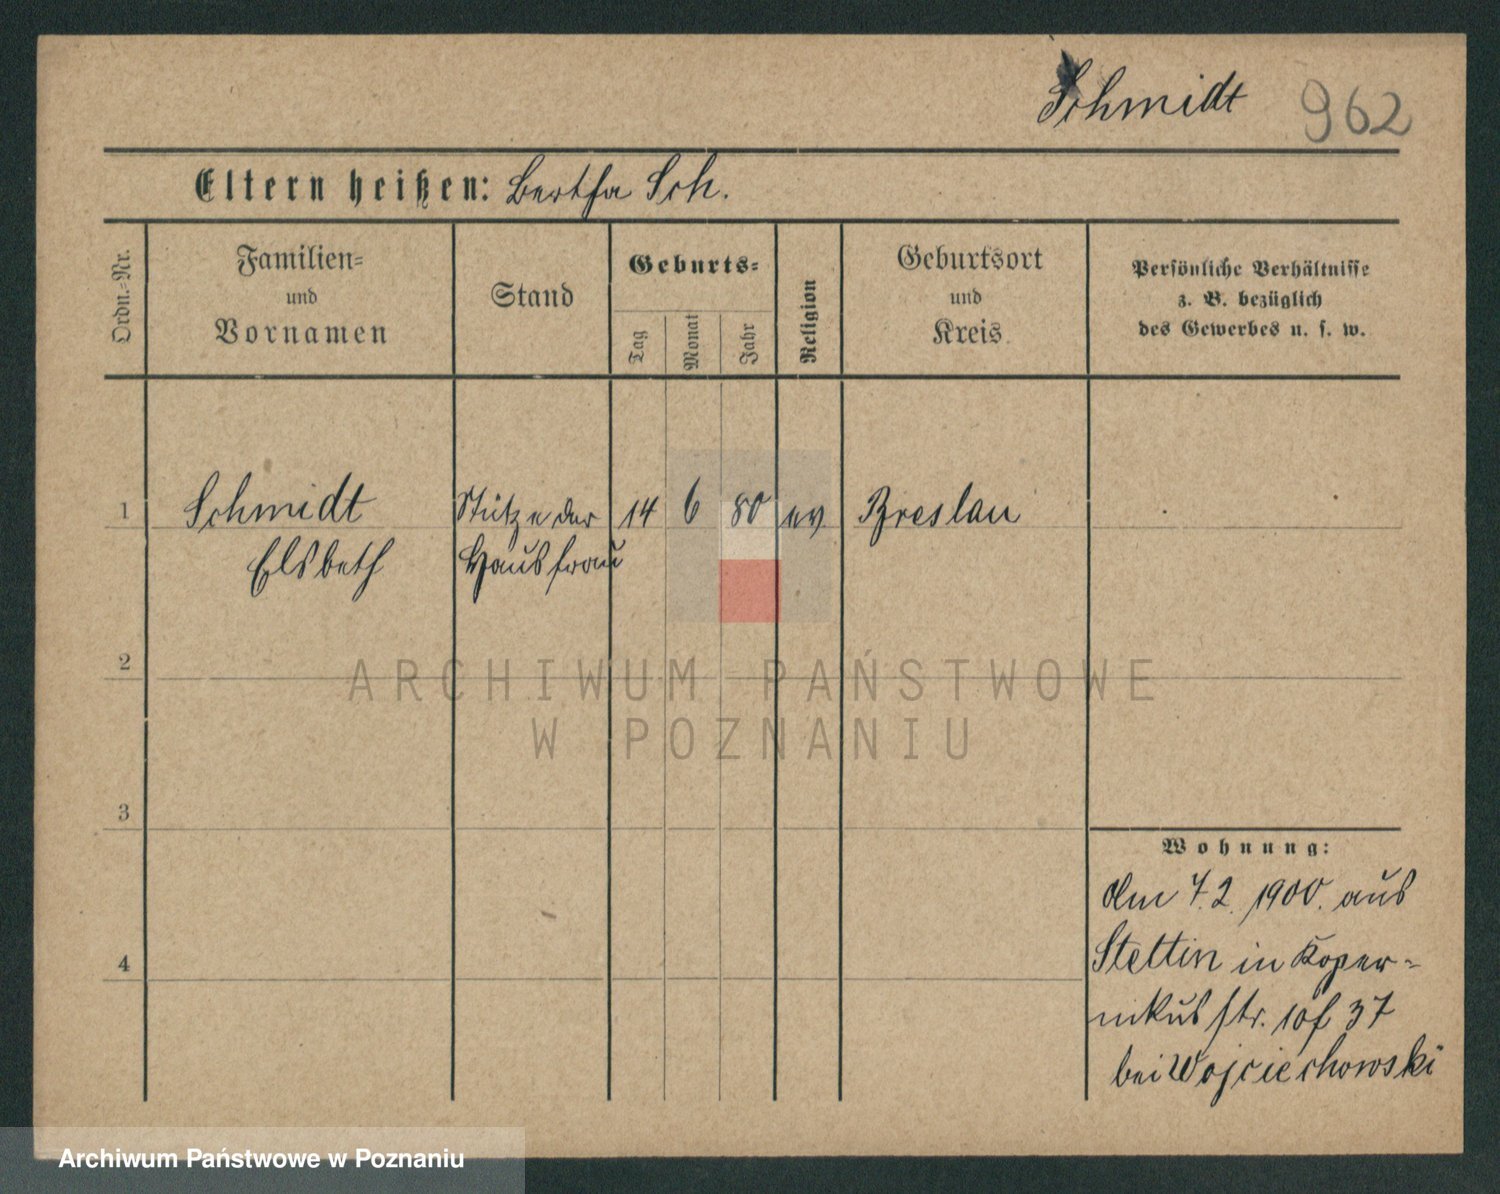 Schmidt 962
Eltern heißen: Bertha Sch.
Ordn.-Nr.
Familien-
und
Vornamen
Stand
Geburts-
Tag
Monat
Jahr
Religion
Geburtsort
und
Kreis.
Persönliche Verhältnisse
z. B. bezüglich
des Gewerbes u. s. w.
1 Schmidt Stütze der 14 6 80 ev Breslau
Elsbeth Hausfrau
2
ARCHIWUM PAŃSTWOWE
W POZNANIU
3
Wohnung:
Am 7.2. 1900. aus
Stettin in Koper-
4
nikusstr. 37
bei Wojciechowski
Archiwum Państwowe w Poznaniu